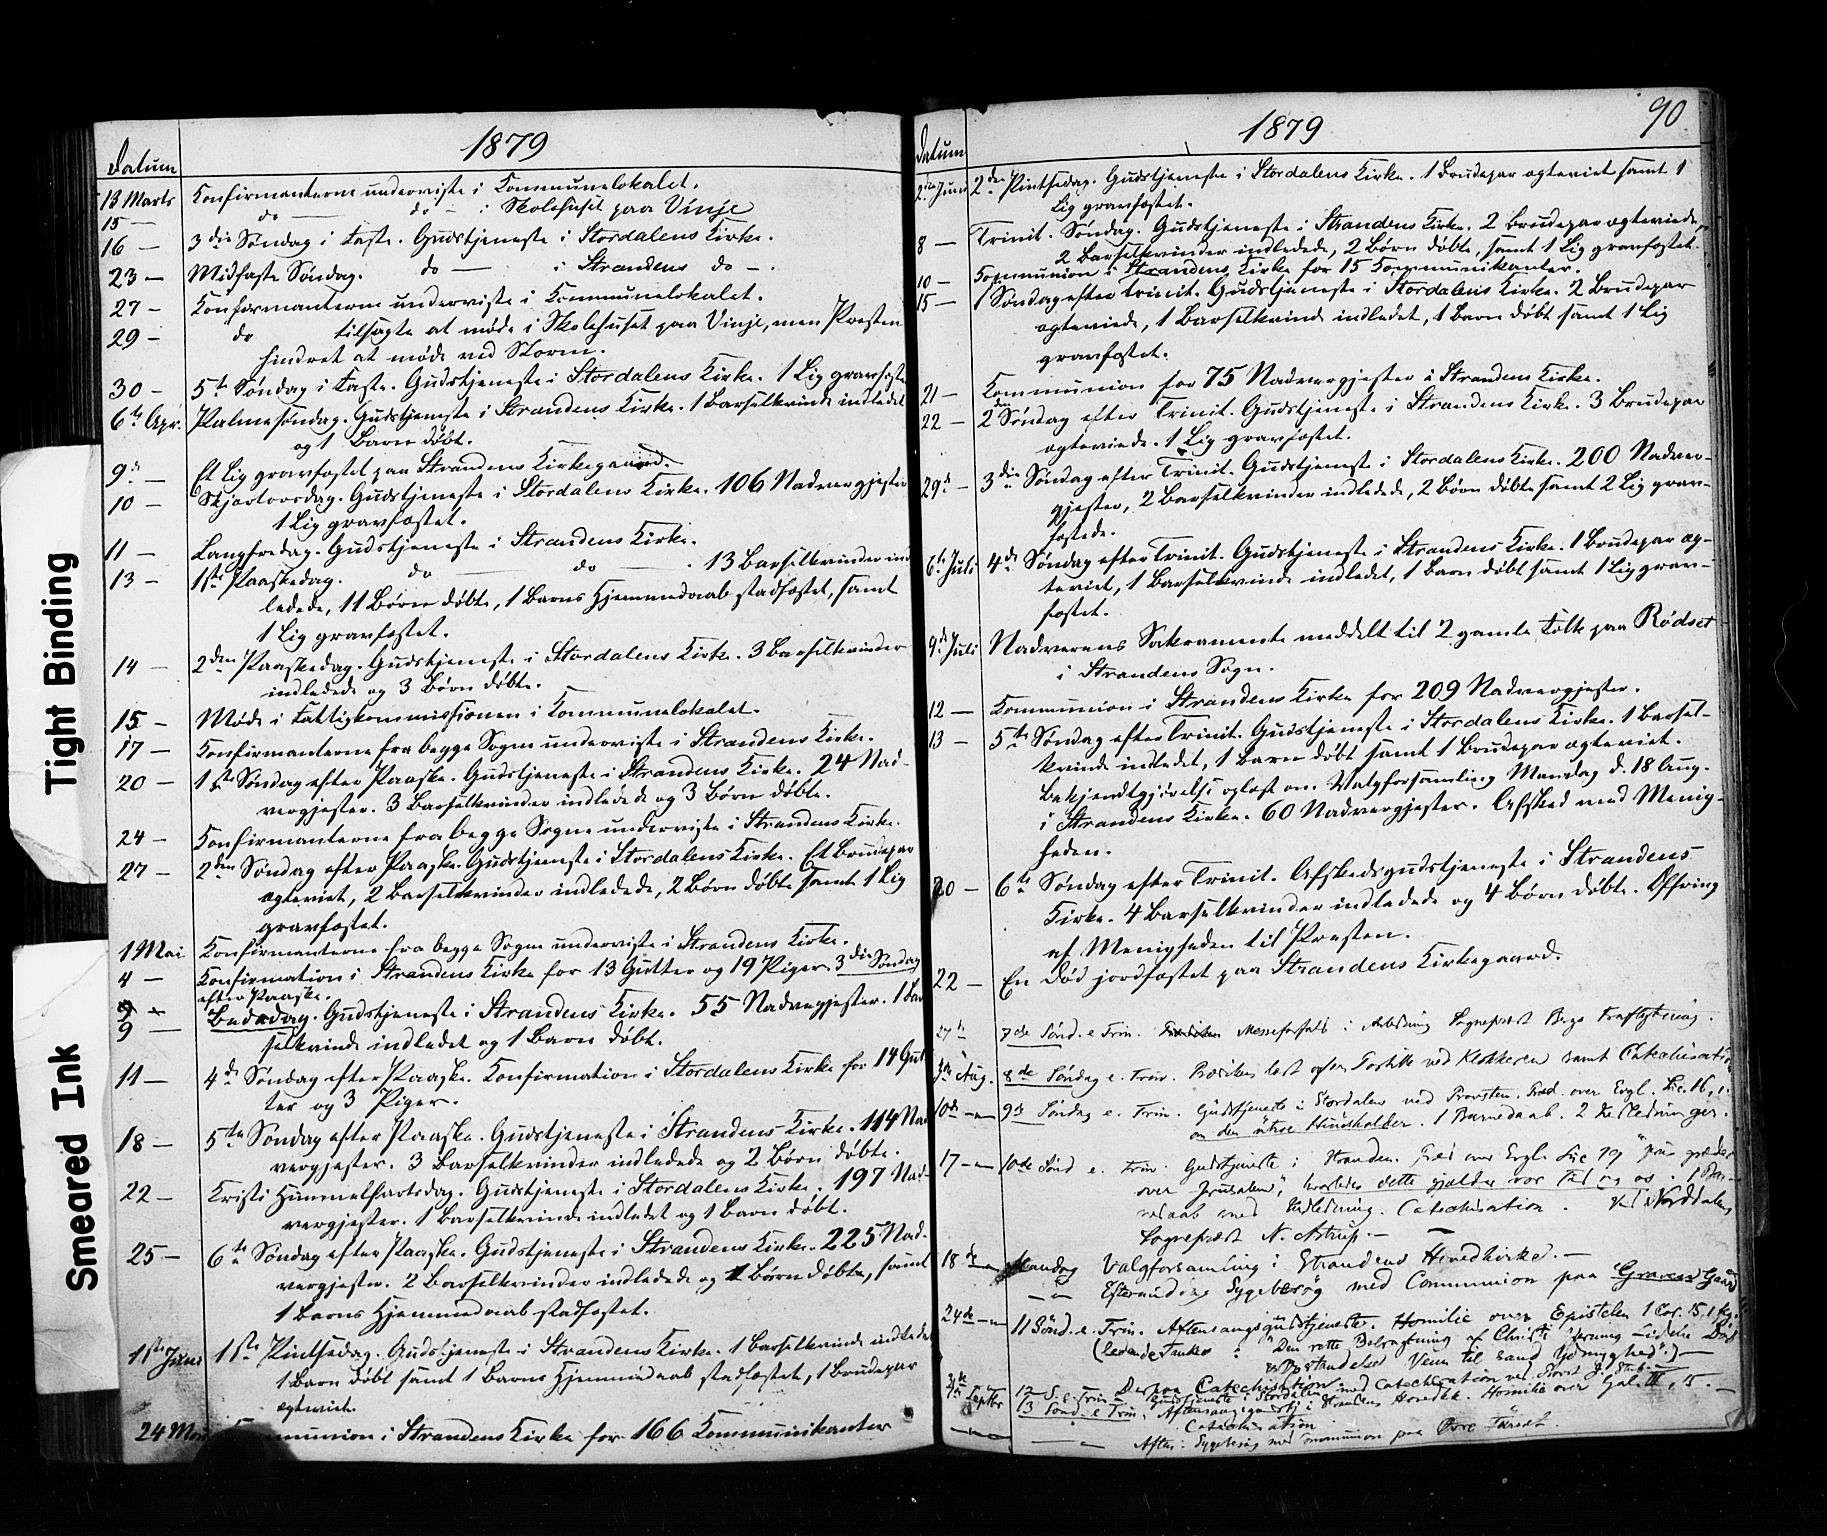 1879
Datum
13 Marts Konfirmanterne underviste i Kommunelokalet.
15 — do — do — i Skolehuset paa Vinje
16 — 3die Søndag i Faste. Gudstjeneste i Stordalens Kirke.
23 — Midfaste Søndag. do — i Strandens do —.
27 — Konfirmanterne underviste i Kommunelokalet.
29 — do tilsagte at møde i Skolehuset paa Vinje, men Presten
hindret at møde ved Storm.
30 — 5te Søndag i Faste. Gudstjeneste i Stordalens Kirke. 1 Lig gravfæstet
6te Apr. Palmesøndag. Gudstjeneste i Strandens Kirke. 1 Barselkvinde indledet
og 1 Barn døbt.
9de — Et Lig gravfæstet paa Strandens Kirkegaard.
10 — Skjærtorsdag. Gudstjeneste i Stordalens Kirke. 106 Nadvergjester
1 Lig gravfæstet.
11 — Langfredag. Gudstjeneste i Strandens Kirke.
13 — 1ste Paaskedag. do — do — . 13 Barselkvinder ind
ledede, 11 Børn døbte, 1 Barns Hjemmedaab stadfæstet, samt
1 Lig gravfæstet.
14 — 2den Paaskedag. Gudstjeneste i Stordalens Kirke. 3 Barselkvinder
indledede og 3 Børn døbte.
15 — Møde i Fattigkommissionen i Kommunelokalet.
17 — Konfirmanterne fra begge Sogne underviste i Strandens Kirke.
20 — 1ste Søndag efter Paaske. Gudstjeneste i Strandens Kirke. 24 Nad-
vergjester. 3 Barselkvinder indledede og 3 Børn døbte.
24 — Konfirmanterne fra begge Sogne underviste i Strandens Kirke.
27 — 2den Søndag efter Paaske. Gudstjeneste i Stordalens Kirke. Et Brudepar
ægteviet, 2 Barselkvinder indledede, 2 Børn døbte samt 1 Lig
gravfæstet.
1 Mai Konfirmanterne fra begge Sogne underviste i Strandens Kirke.
4 — Konfirmation i Strandens Kirke for 13 Gutter og 19 Piger. 3die Søndag
efter Paaske.
9 — Bededag. Gudstjeneste i Strandens Kirke. 55 Nadvergjester. 1 Bar
selkvinde indledet og 1 Barn døbt.
11 — 4de Søndag efter Paaske. Konfirmation i Stordalens Kirke for 14 Gut
ter og 3 Piger.
18 — 5te Søndag efter Paaske. Gudstjeneste i Strandens Kirke. 114 Nad
vergjester. 3 Barselkvinder indledede og 2 Børn døbte.
22 — Kristi Himmelfartsdag. Gudstjeneste i Stordalens Kirke. 197 Nad-
vergjester. 1 Barselkvinde indledet og 1 Barn døbt.
25 — 6te Søndag efter Paaske. Gudstjeneste i Strandens Kirke. 225 Nad-
vergjester. 2 Barselkvinder indledede og 1 Børn døbte, samt
1 Barns Hjemmedaab stadfæstet.
1ste Juni 1ste Pintsedag. Gudstjeneste i Strandens Kirke. 1 Barselkvinde indledet
1 Barn døbt samt 1 Barns Hjemmedaab stadfæstet, 1 Brudepar
ægteviet.
24 Kommunion i Strandens Kirke for 166 Kommunikanter
1879
90
Datum
2den Juni 2den Pintsedag. Gudstjeneste i Stordalens Kirke. 1 Brudepar ægteviet samt 1
Lig gravfæstet.
8 — Trinit. Søndag. Gudstjeneste i Strandens Kirke. 2 Brudepar ægteviede,
2 Barselkvinder indledede, 2 Børn døbte, samt 1 Lig gravfæstet.
10 — Kommunion i Strandens Kirke for 15 Kommunikanter.
15 — 1 Søndag efter Trinit. Gudstjeneste i Stordalens Kirke. 2 Brudepar
ægteviede, 1 Barselkvinde indledet, 1 Barn døbt samt 1 Lig
gravfæstet.
21 — Kommunion for 75 Nadvergjester i Strandens Kirke.
22 — 2den Søndag efter Trinit. Gudstjeneste i Strandens Kirke. 3 Brudepar
ægteviede. 1 Lig gravfæstet.
29de — 3die Søndag efter Trinit. Gudstjeneste i Stordalens Kirke. 200 Nadver-
gjester, 2 Barselkvinder indledede, 2 Børn døbte samt 2 Lig grav-
fæstede.
6te Juli 4de Søndag efter Trinit. Gudstjeneste i Strandens Kirke. 1 Brudepar æg-
teviet, 1 Barselkvinde indledet, 1 Barn døbt samt 1 Lig grav-
fæstet.
9de Juli Nadverens Sakramente meddelt til 2 gamle Folk paa Rødset
i Strandens Sogn.
12 — Kommunion i Strandens Kirke for 209 Nadvergjester.
13 — 5te Søndag efter Trinit. Gudstjeneste i Stordalens Kirke. 1 Barsel-
kvinde indledet, 1 Barn døbt samt 1 Brudepar ægteviet.
Bekjendtgjørelse oplæst om Valgforsamling Mandag d. 18 Aug.
i Strandens Kirke. 60 Nadvergjester. Afsked med Menig-
heden.
20 — 6te Søndag efter Trinit. Afskedsgudstjeneste i Strandens
Kirke. 4 Barselkvinder indledede og 4 Børn døbte. Offring
af Menigheden til Presten.
22 — En Død jordfæstet paa Strandens Kirkegaard.
27de 7de Sønd. e Trin. Messeforfald i Anledning Sognepræst Bergs Fraflytning.
3die Aug. 8de Søndag e. Trin. Præken læst af Klokkeren samt Catechisation
10de — 9de Søndag e. Trin. Gudstjeneste i Stordalen ved Provsten. Præd. over Evgl. Luc. 16, 1..
om den utroe Huusholder. 1 Barnedaab. 2
17 — 10de Sønd e. Trin. Gudstjeneste i Stranden. Præd over Evgl. Luc 19 "Jesus græder
over Jerusalem", hvorledes dette gjælder vor Tid og os. 1 Bar-
nedaab med Indledning. Catechisation. Norddalens
Sognepræst N. Astrup. —
18de — Mandag Valgforsamling i Strandens Hovedkirke. —
— Eftermiddag Sygebesøg med Communion paa Gravens Gaard
24de — 11 Sønd. e. Trin. Aftensangsgudstjeneste. Homilie over Epistelen 1 Cor. 15, 1
(ledende Tanke: "Den rette Betragtning af Christi Død
Opstandelse Veien til sand Ydmyghed".) —
Derpaa Catechisation
31te 12 S. e Trin. Gudstjeneste i Stordalen med Catechisation ved Provst
7de Septbr 13 Sønd. e Trin. Aftensangsgudstj. i Strandens Hovedk. Homilie over Gal. III, 15. —
Catechisation
— Aften: Sygebesøg med Communion paa Øvre
Tight Binding
Smeared Ink